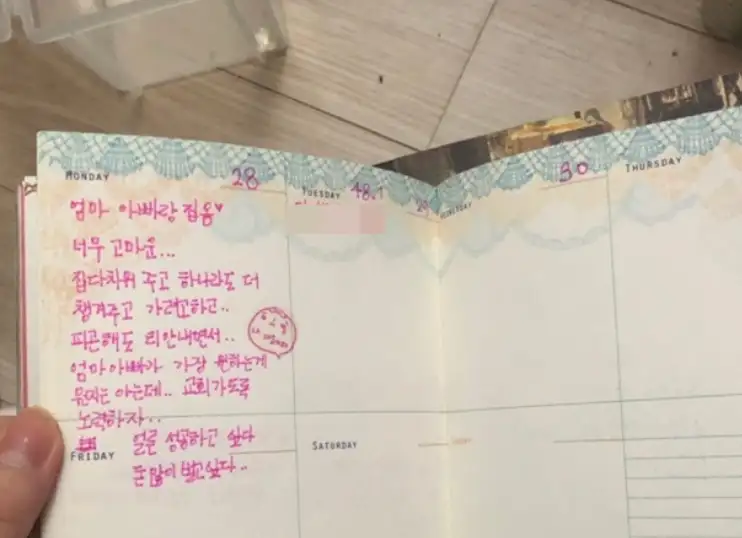 MONDAY
28
엄마 아빠랑 집옴♥
너무 고마운...
집다치워 주고 하나라도 더
챙겨주고 가려고하고..
피곤해도 티안내면서..
엄마아빠가 가장 원하는게
뭔지는 아는데.. 교회가도록
노력하자..
얼른 성공하고 싶다
돈많이 벌고싶다..
TUESDAY
48.7
29
30
THURSDAY
FRIDAY
SATURDAY